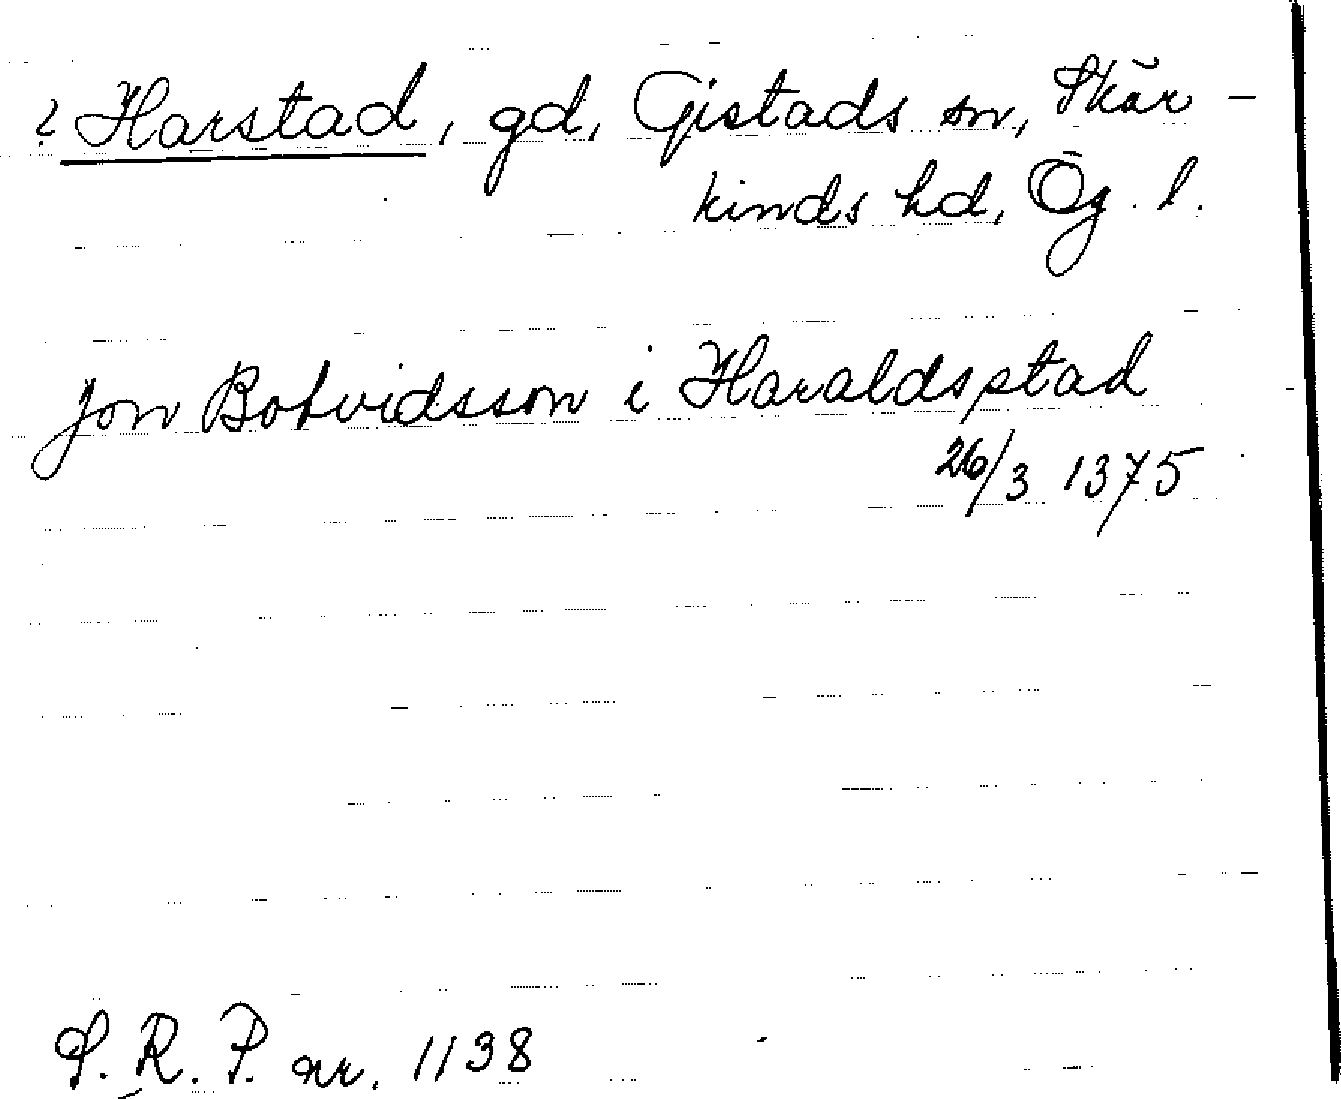 ? Harstad, gd, Gistads sn, Skär-
kinds hd, Ög. l.
Jon Botvidsson i Haraldsstad
26/3 1375
S. R. P. nr. 1138